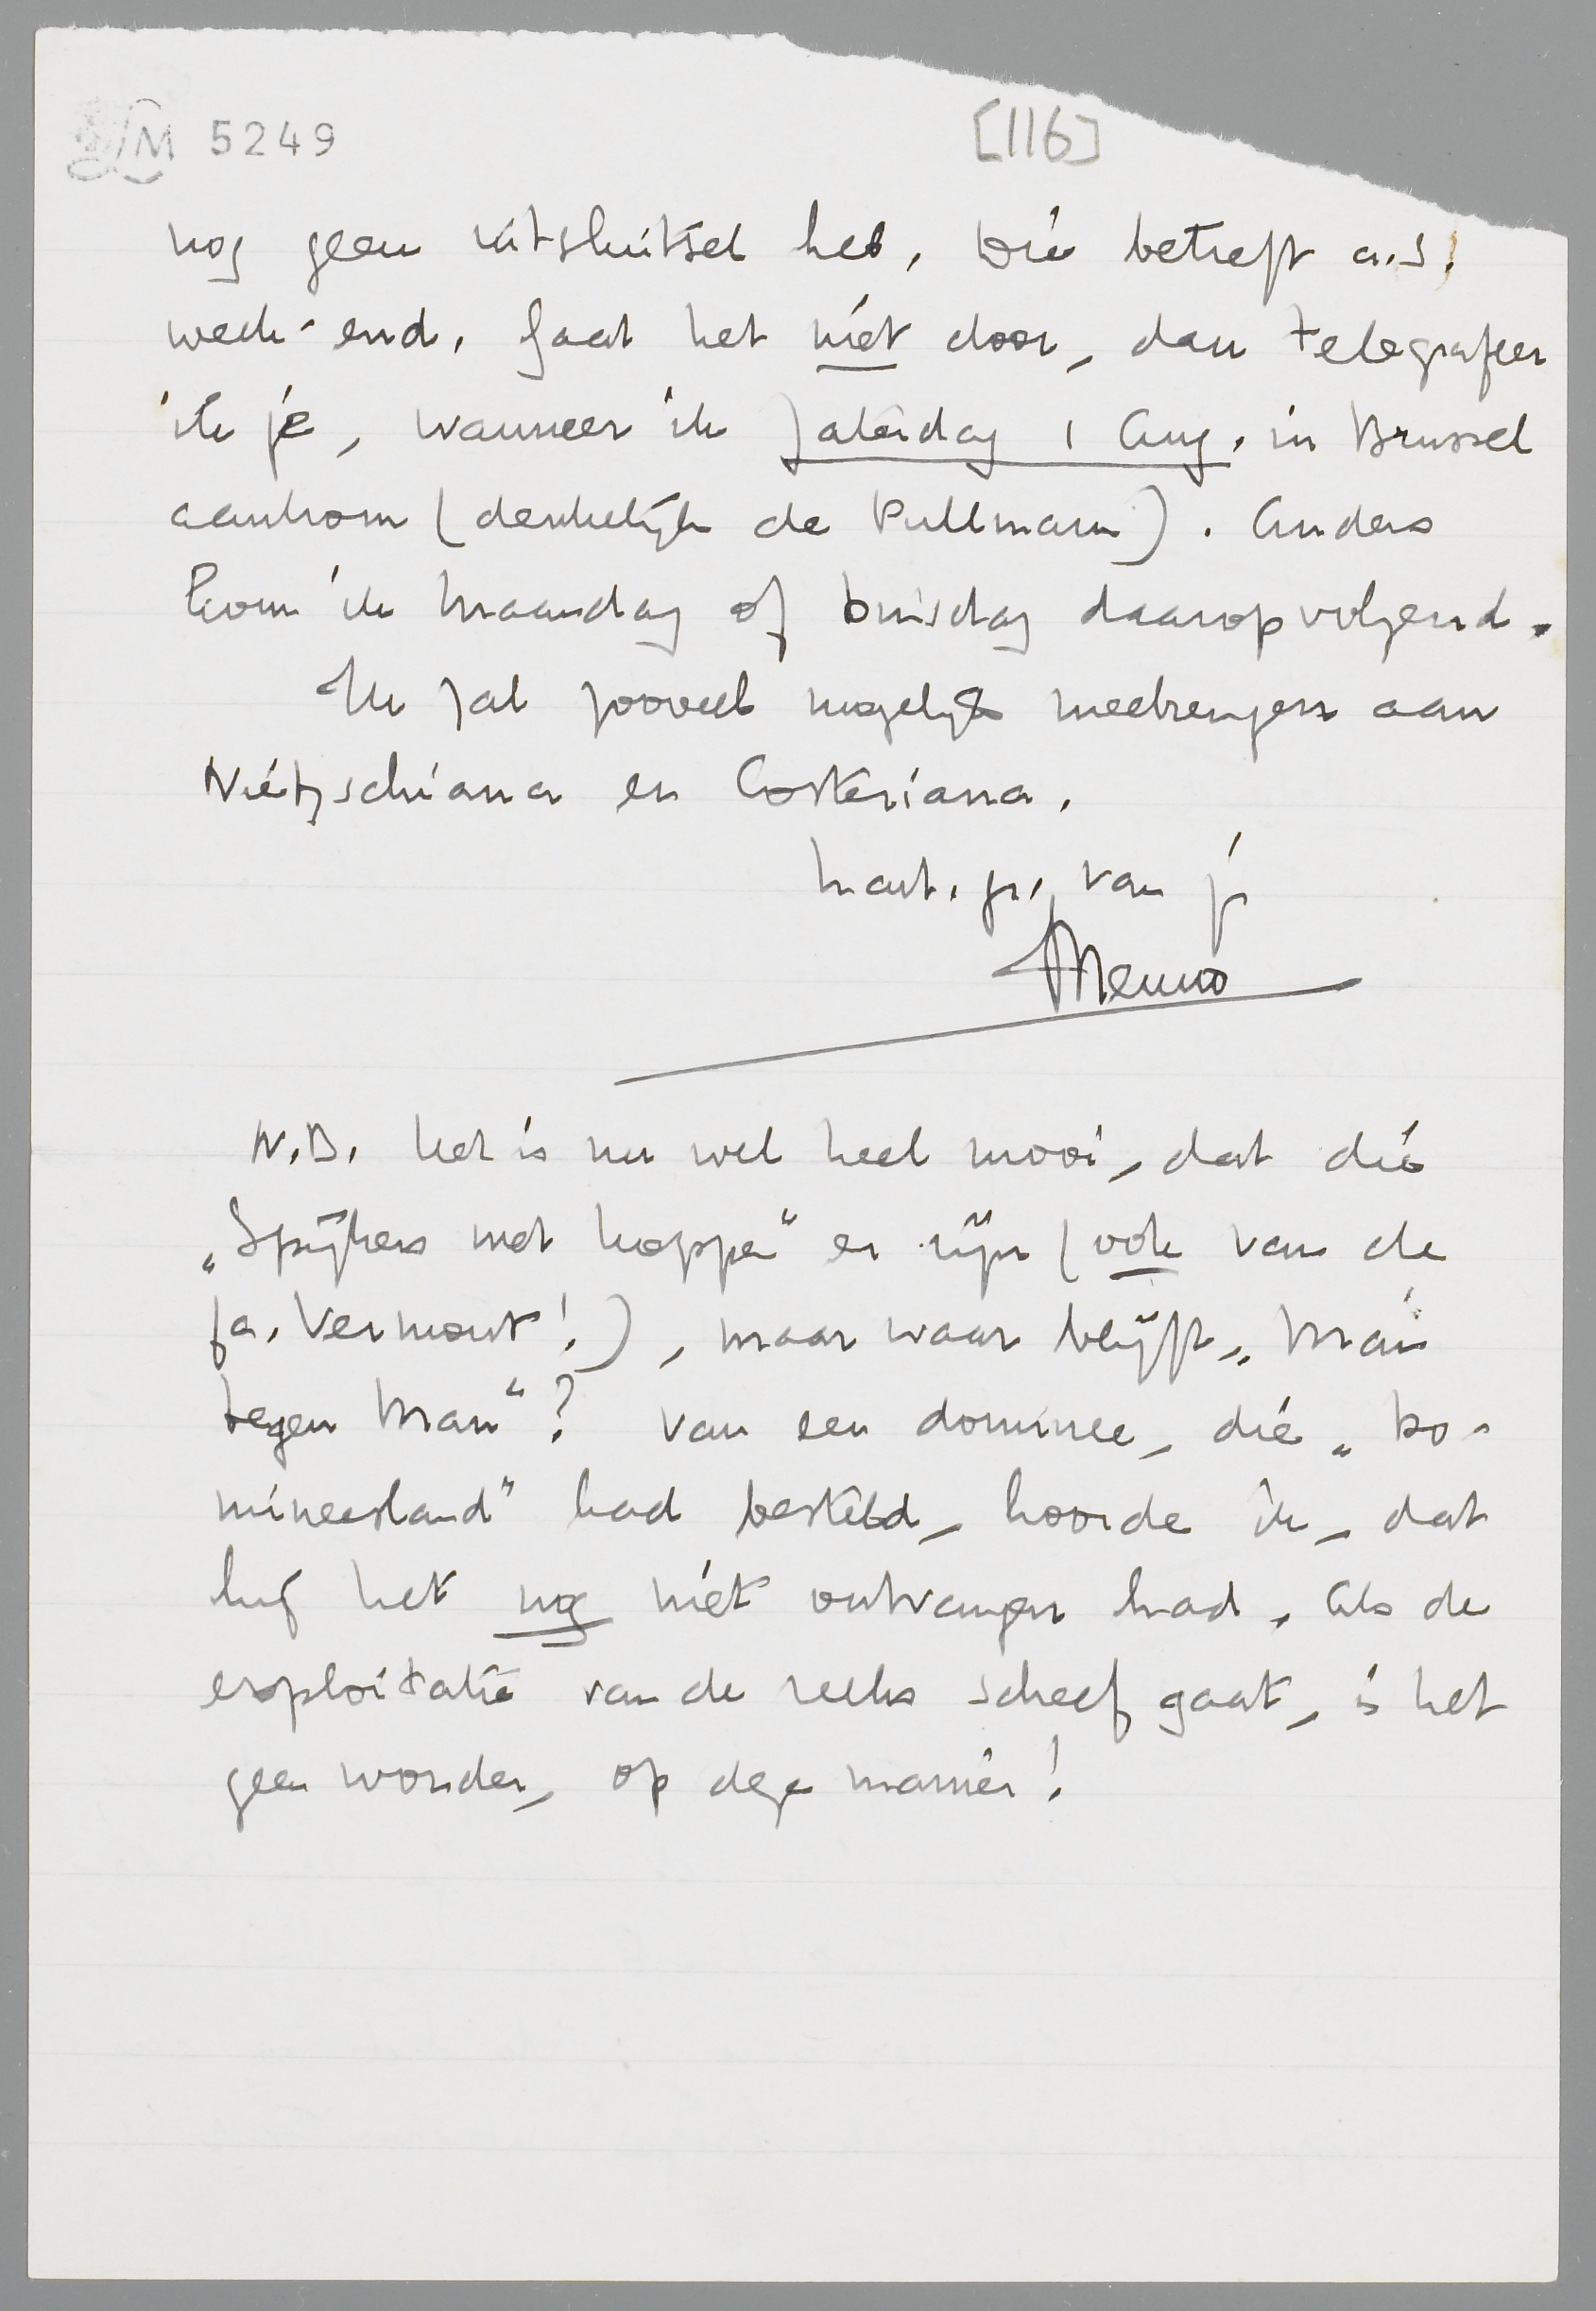 M 5249
[116]
nog geen uitsluitsel heb, die betreft a.s.
week-end. Gaat het niet door, dan telegrafeer
ik je, wanneer ik Zaterdag 1 Aug. in Brussel
aankom (denkelijk de Pullman). Anders
kom ik Maandag of Dinsdag daaropvolgend.
Ik zal zooveel mogelijk meebrengen aan
Nietzschiana en Costeriana.
hart. gr. van je
Menno
N.B. Het is nu wel heel mooi, dat die
„Spijkers met koppen" er zijn (ook van de
fa. Vermout!), maar waar blijft „Man
tegen Man"? Van een dominee, die „Do-
mineesland" had besteld, hoorde ik, dat
hij het nog niet ontvangen had. Als de
exploitatie van de reeks scheef gaat, is het
geen wonder, op deze manier!